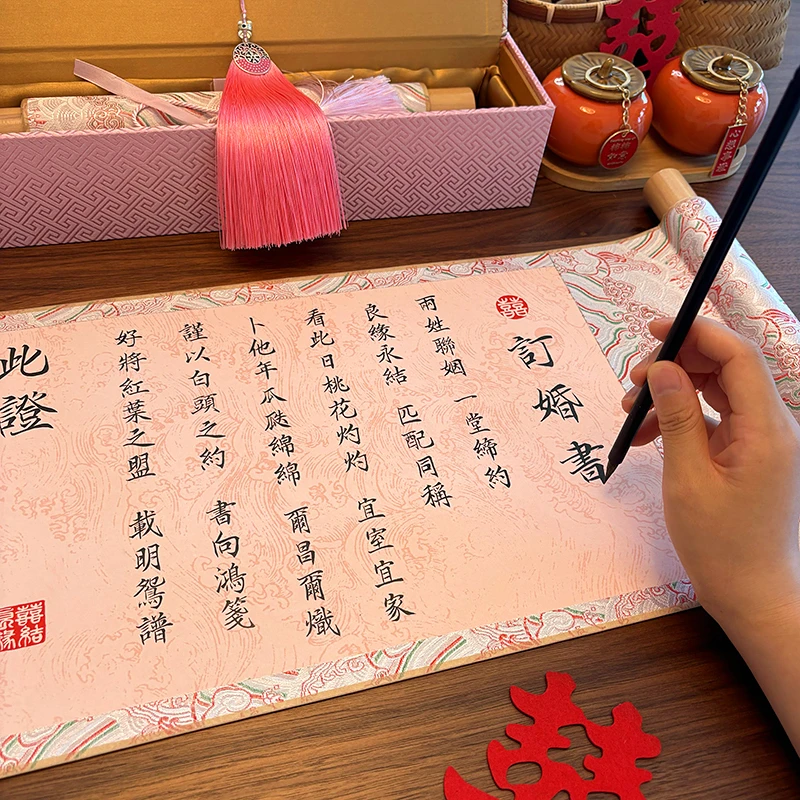 囍
訂婚書
兩姓聯姻 一堂締約
良緣永結 匹配同稱
看此日桃花灼灼 宜室宜家
卜他年瓜瓞綿綿 爾昌爾熾
謹以白頭之約 書向鴻箋
好將紅葉之盟 載明鴛譜
此證
囍結良緣
囍
囍